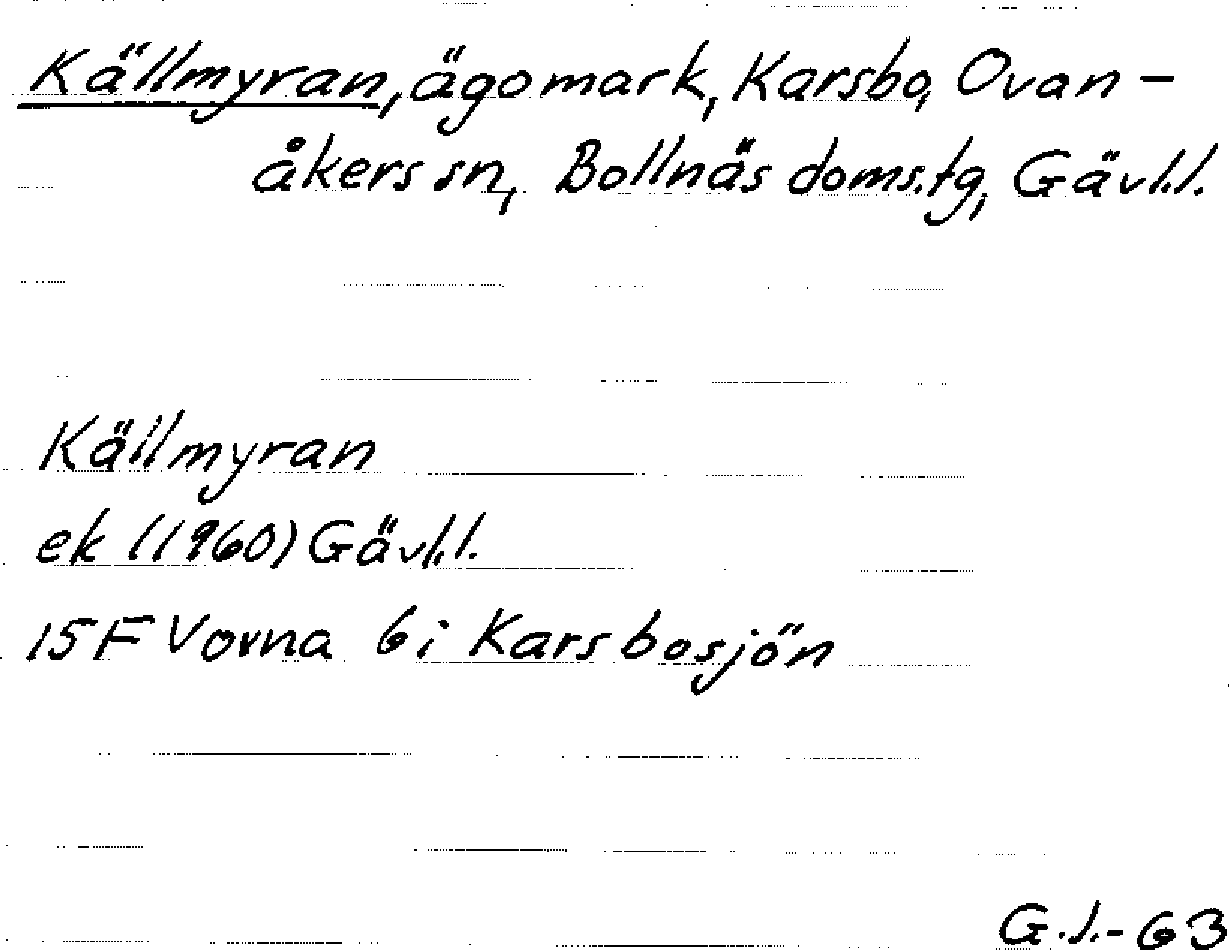 Källmyran, ägomark, Karsbo, Ovan-
åkers sn, Bollnäs doms.tg, Gävl.l.
Källmyran
ek (1960) Gävl.l.
15F Vovna 6i Karsbosjön
G.J.-63